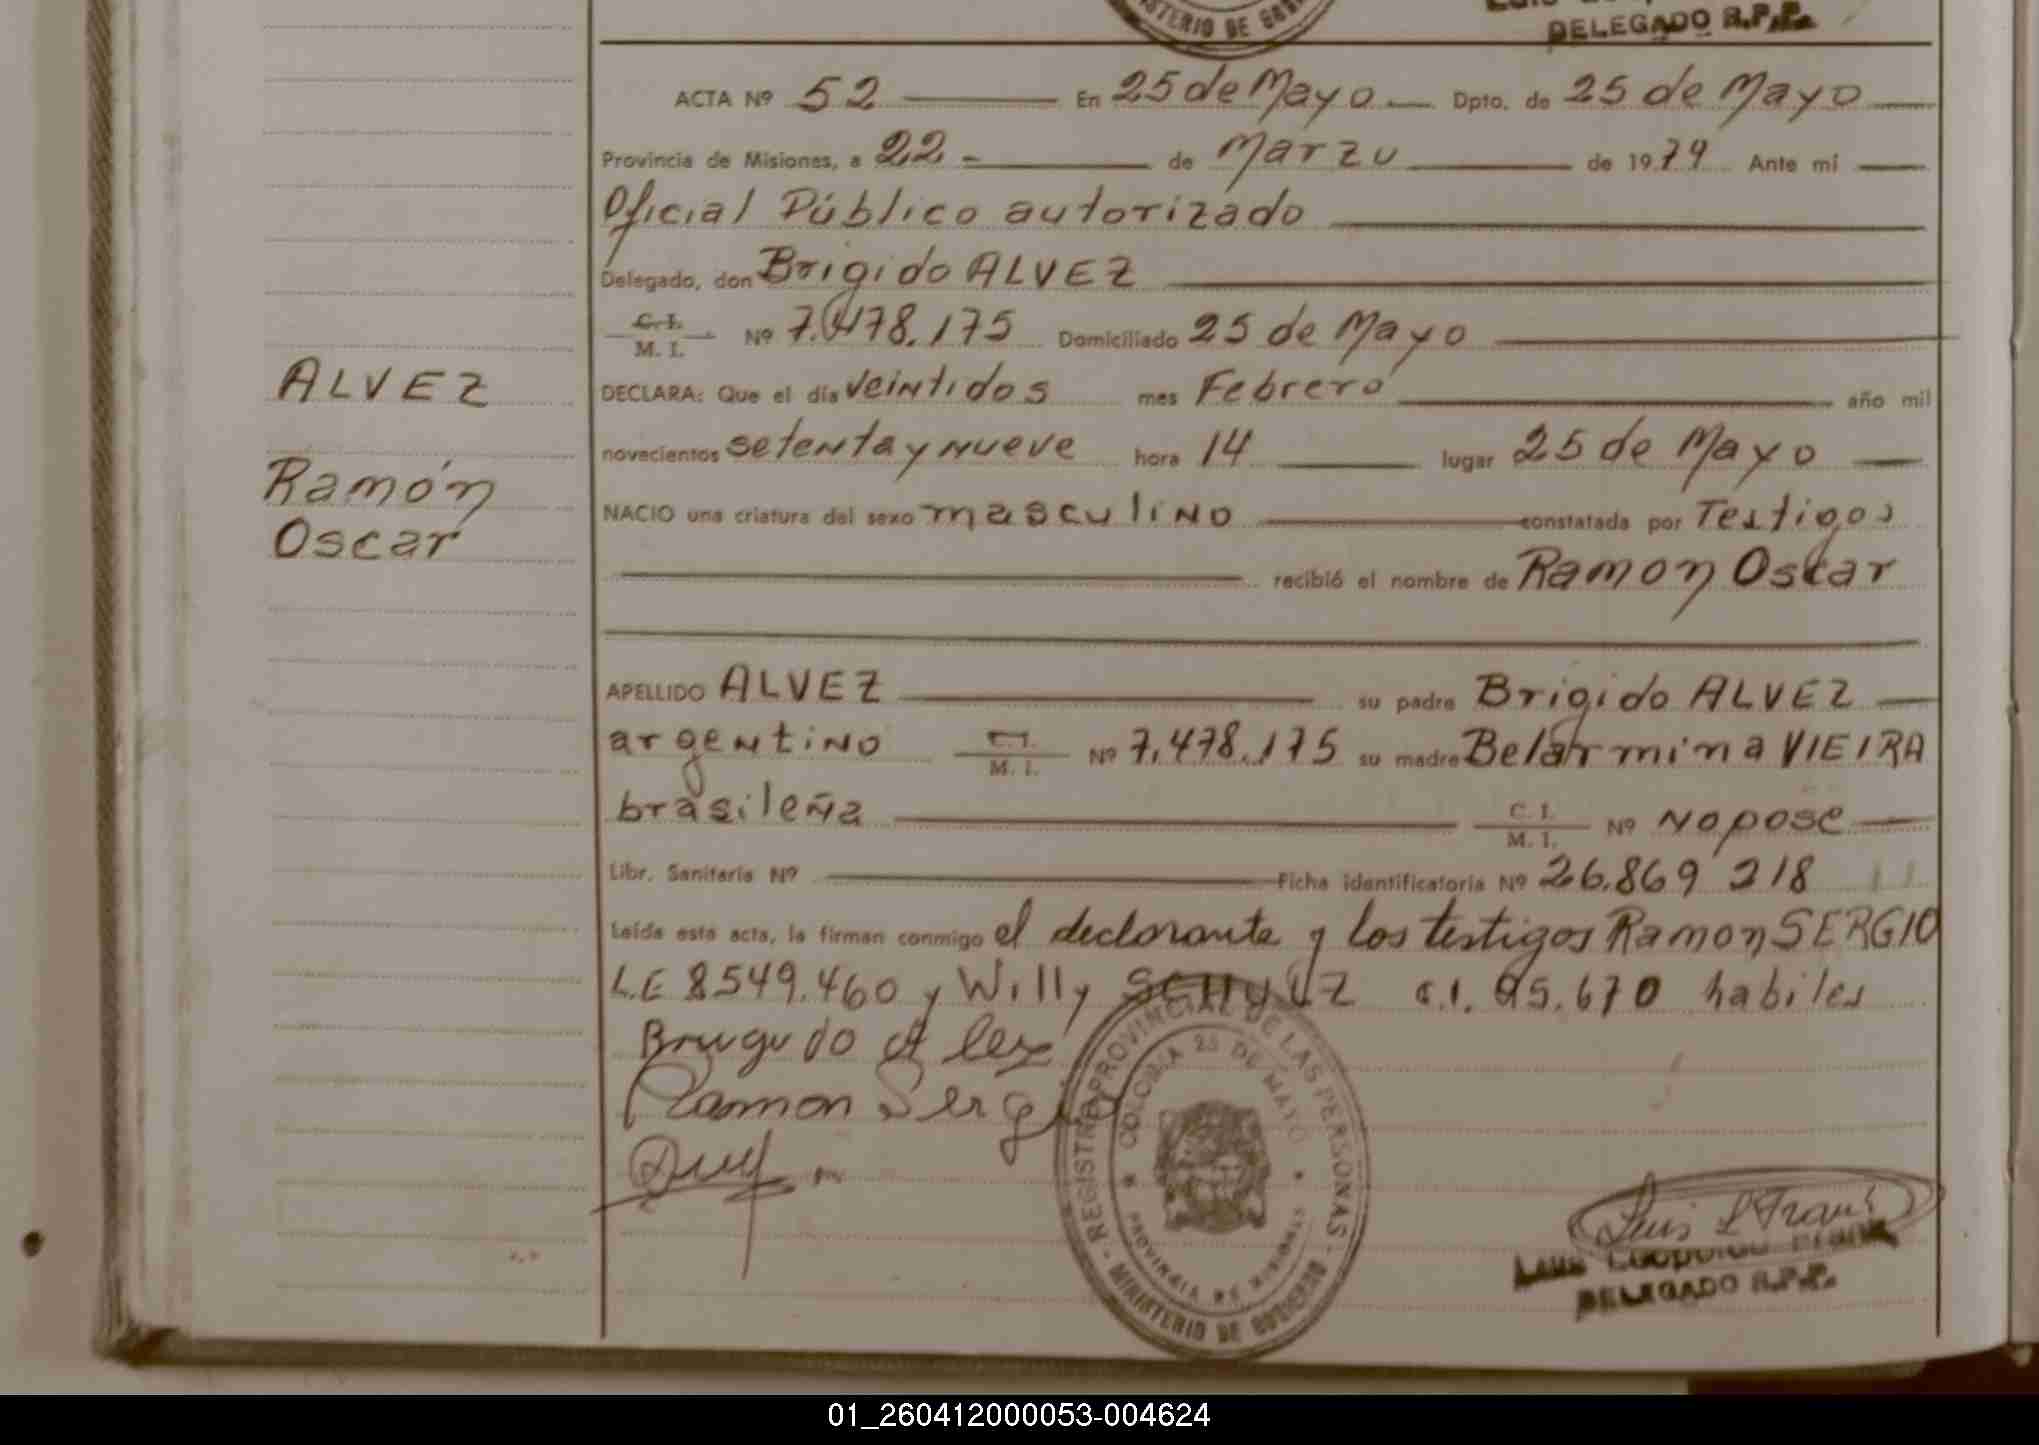 MINISTERIO DE GOB
DELEGADO R.P.P.
ACTA Nº 52 En 25 de Mayo Dpto. de 25 de Mayo
Provincia de Misiones, a 22 de Marzo de 1979 Ante mi
Oficial Público autorizado
Delegado, don Brigido ALVEZ
C. I. / M. I. Nº 7.478.175 Domiciliado 25 de Mayo
ALVEZ
DECLARA: Que el día veintidos mes Febrero año mil
novecientos setenta y nueve hora 14 lugar 25 de Mayo
Ramón
NACIO una criatura del sexo masculino constatada por Testigos
Oscar
recibió el nombre de Ramon Oscar
APELLIDO ALVEZ su padre Brigido ALVEZ
argentino C. I. / M. I. Nº 7.478.175 su madre Belarmina VIEIRA
brasileña C. I. / M. I. Nº No pose
Libr. Sanitaria Nº Ficha identificatoria Nº 26.869 218
Leída esta acta, la firman conmigo el declarante y los testigos Ramon SERGIO
L.E 8549.460 y Willy C.I. 95.670 habiles
Ramon Sergio
REGISTRO PROVINCIAL DE LAS PERSONAS - MINISTERIO DE GOBIERNO
COLONIA 25 DE MAYO
PROVINCIA DE MISIONES
Luis L Frank
Luis Leopoldo Frank
DELEGADO R.P.P.
01_260412000053-004624